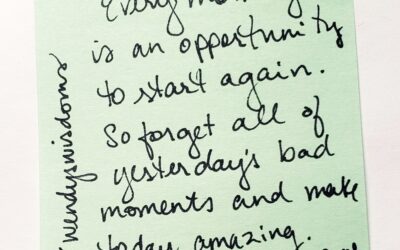 Every morning
is an opportunity
to start again.
So forget all of
yesterday's bad
moments and make
today amazing.
wendyswisdoms